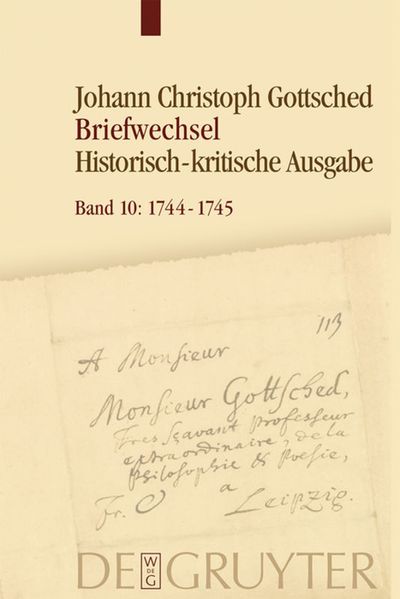 Johann Christoph Gottsched
Briefwechsel
Historisch-kritische Ausgabe
Band 10: 1744-1745
113
A Monsieur
Monsieur Gottsched,
Tres Sçavant Professeur
extraordinaire, de la
Philosophie & Poesie,
a
Fr. Leipzig.
DE GRUYTER
W
DE
G